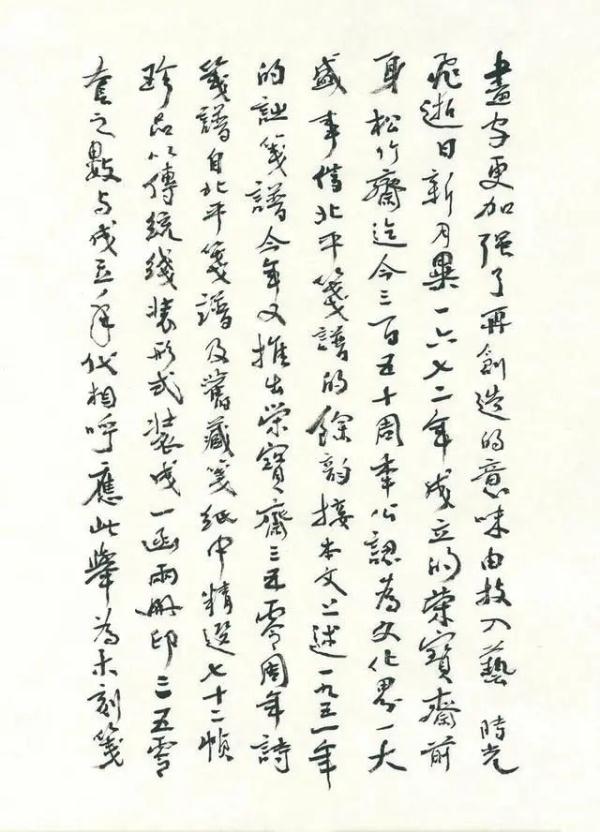 畫字更加强了再創造的意味由技入藝 時光
飛逝日新月異一六七二年成立的榮寶齋前
身松竹齋迄今三百五十周年公認為文化界一大
盛事借北平箋譜的餘韵接本文上述一九五一年
的箋譜今年又推出榮寶齋三五零周年詩
箋譜自北平箋譜及舊藏箋紙中精選七十二幀
珍品以傳統綫裝形式装成一函兩册印三五零
套之數与成立年代相呼應此舉為木刻箋